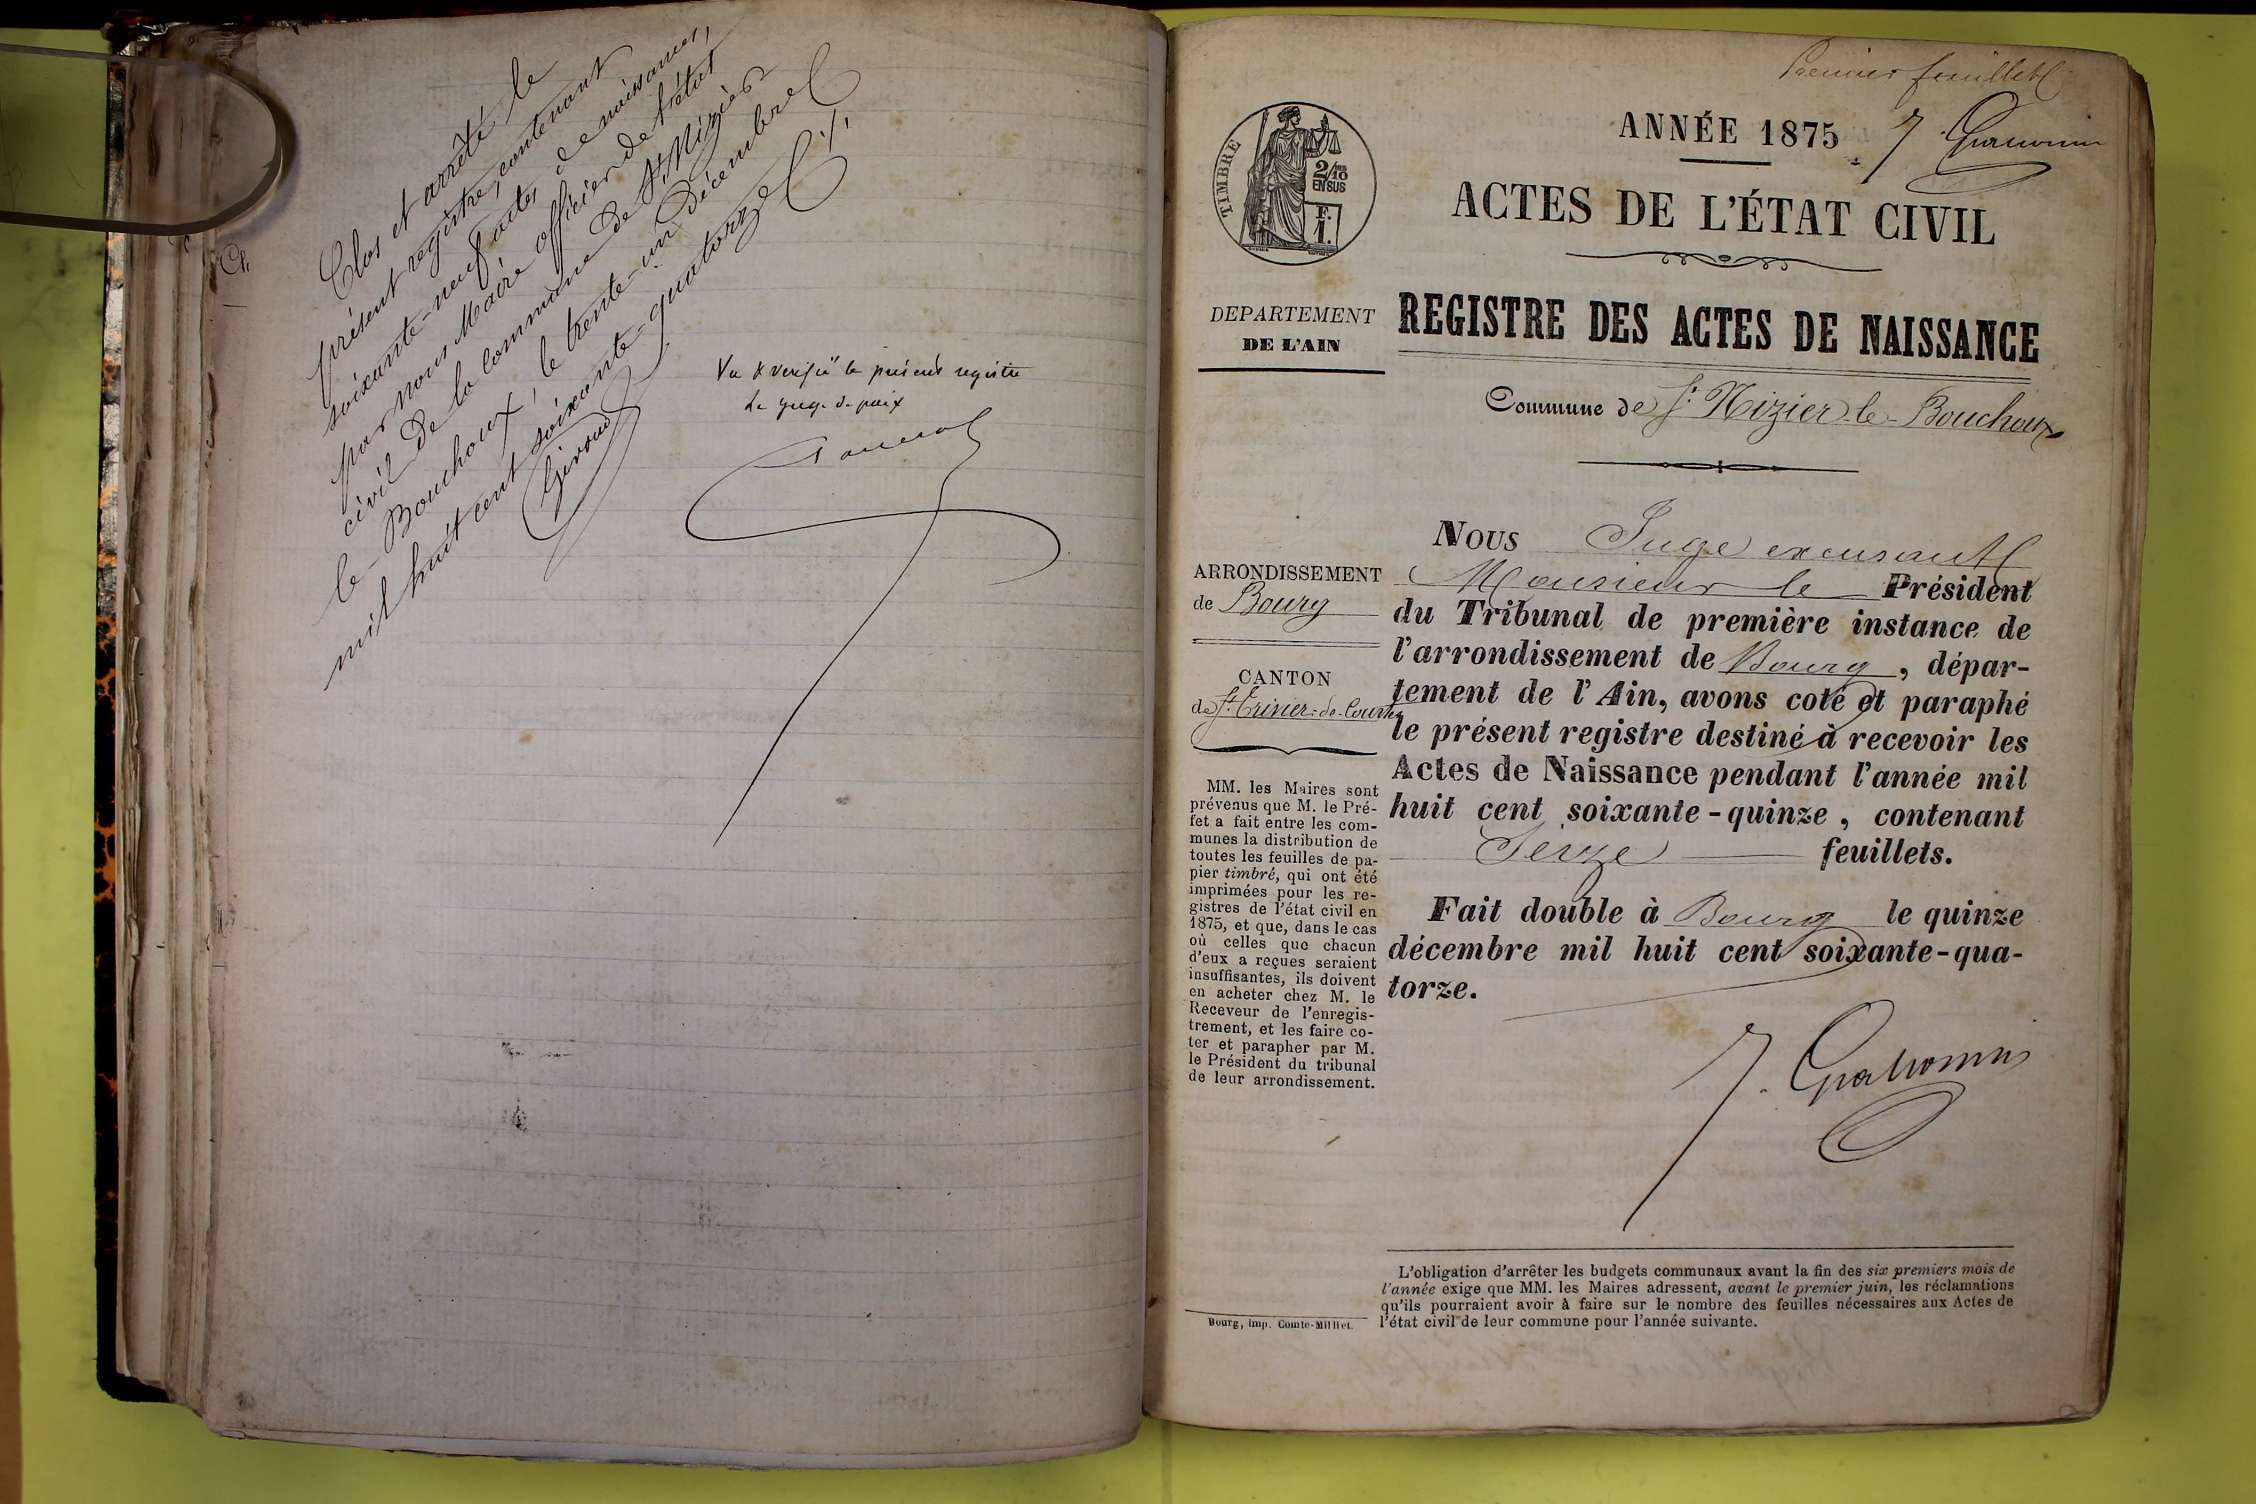 Clos et arrêté le
présent registre, contenant
soixante-neuf actes de naissances,
par nous Maire officier de l'état
civil de la commune de St Nizier
le-Bouchoux, le trente-un décembre
mil huit cent soixante-quatorze ./.
Giroud
Vu & verifié le présent registre
Le juge de paix
Ch.
Premier feuillet
TIMBRE
2/10 EN SUS
F.
1.
ANNÉE 1875
ACTES DE L'ÉTAT CIVIL
DEPARTEMENT
DE L'AIN
REGISTRE DES ACTES DE NAISSANCE
Commune de St Nizier-le-Bouchoux
ARRONDISSEMENT
de Bourg
CANTON
de St Trivier-de-Courtes
MM. les Maires sont
prévenus que M. le Pré-
fet a fait entre les com-
munes la distribution de
toutes les feuilles de pa-
pier timbré, qui ont été
imprimées pour les re-
gistres de l'état civil en
1875, et que, dans le cas
où celles que chacun
d'eux a reçues seraient
insuffisantes, ils doivent
en acheter chez M. le
Receveur de l'enregis-
trement, et les faire co-
ter et parapher par M.
le Président du tribunal
de leur arrondissement.
Bourg, imp. Comte-Milliet.
NOUS Juge excusant
Monsieur le Président
du Tribunal de première instance de
l'arrondissement de Bourg, dépar-
tement de l'Ain, avons coté et paraphé
le présent registre destiné à recevoir les
Actes de Naissance pendant l'année mil
huit cent soixante-quinze, contenant
Seize feuillets.
Fait double à Bourg le quinze
décembre mil huit cent soixante-qua-
torze.
L'obligation d'arrêter les budgets communaux avant la fin des six premiers mois de
l'année exige que MM. les Maires adressent, avant le premier juin, les réclamations
qu'ils pourraient avoir à faire sur le nombre des feuilles nécessaires aux Actes de
l'état civil de leur commune pour l'année suivante.